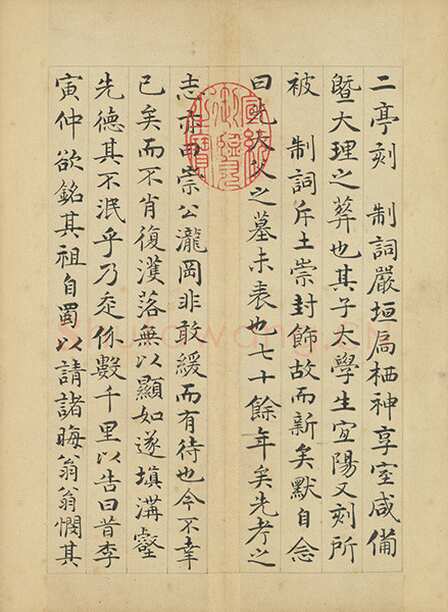 二亭刻　制詞嚴垣扃栖神享室咸備
暨大理之葬也其子太學生宜陽又刻所
被　制詞斥土崇封飾故而新矣默自念
曰吾大父之墓未表也七十餘年矣先考之
志亦曰崇公瀧岡非敢緩而有待也今不幸
已矣而不肖復濩落無以顯如遂填溝壑
先德其不泯乎乃走伻數千里以告曰昔李
寅仲欲銘其祖自蜀以請諸晦翁翁憫其